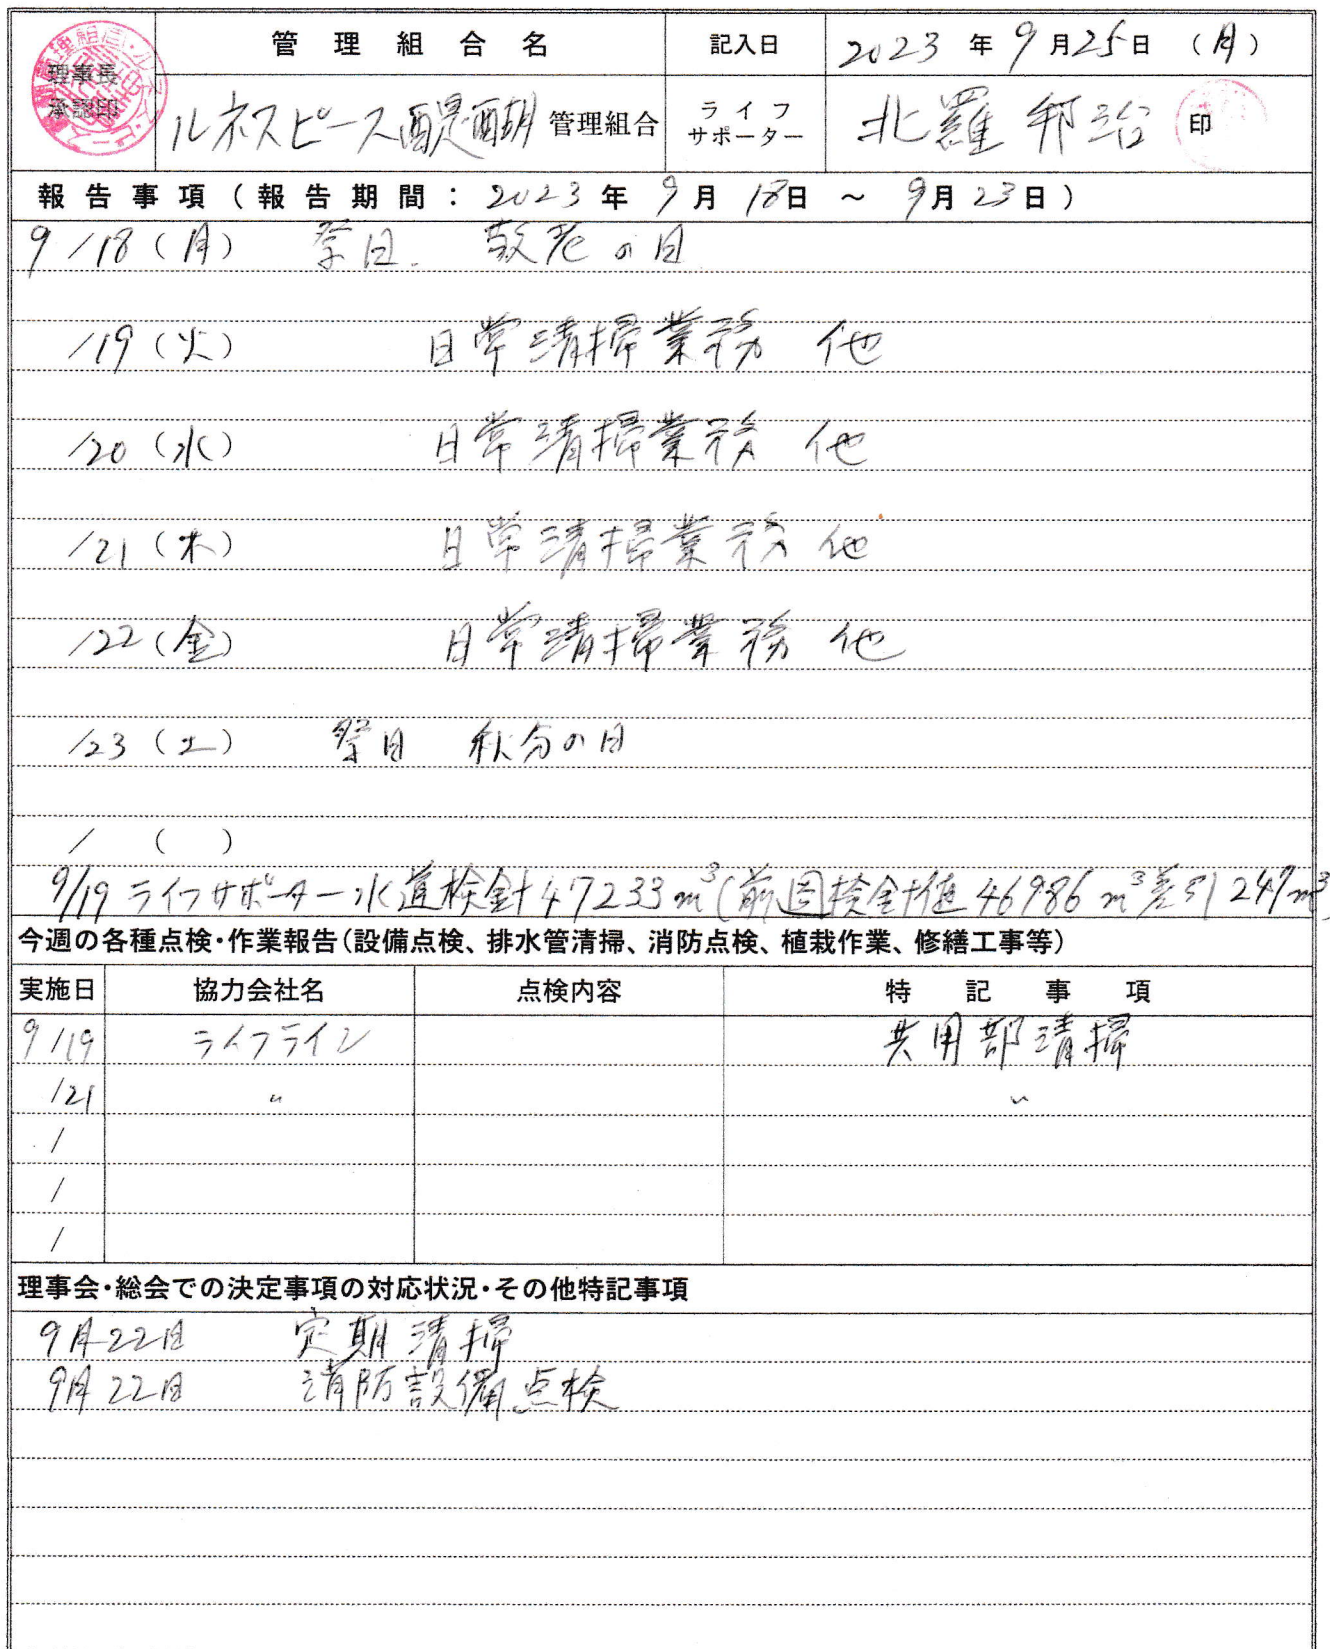 理事長
承認印
管理組合名
記入日
2023年9月25日(月)
ルネスピース醍醐管理組合
ライフ
サポーター
北羅邦治
印
報告事項(報告期間:2023年9月18日~9月23日)
9/18(月) 祭日. 敬老の日
/19(火) 日常清掃業務 他
/20(水) 日常清掃業務 他
/21(木) 日常清掃業務 他
/22(金) 日常清掃業務 他
/23(土) 祭日 秋分の日
/ ( )
9/19 ライフサポーター水道検針47233m³(前回検針値46986m³差引247m³
今週の各種点検・作業報告(設備点検、排水管清掃、消防点検、植栽作業、修繕工事等)
実施日 協力会社名 点検内容 特記事項
9/19 ライフライン 共用部清掃
/21 〃 〃
/
/
/
理事会・総会での決定事項の対応状況・その他特記事項
9月22日 定期清掃
9月22日 消防設備点検